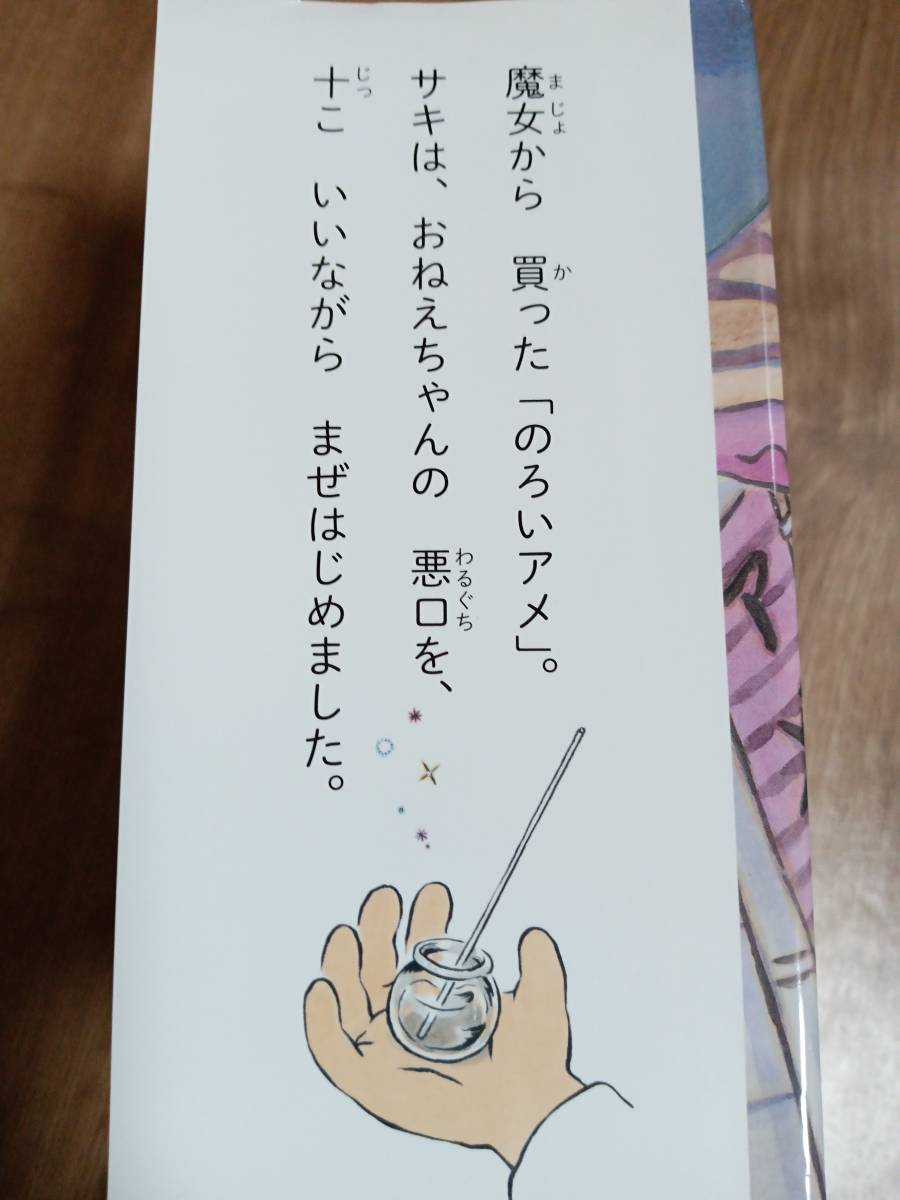 魔女から　買った「のろいアメ」。
サキは、おねえちゃんの　悪口を、
十こ　いいながら　まぜはじめました。
まじょ
か
わるぐち
じっ
ア